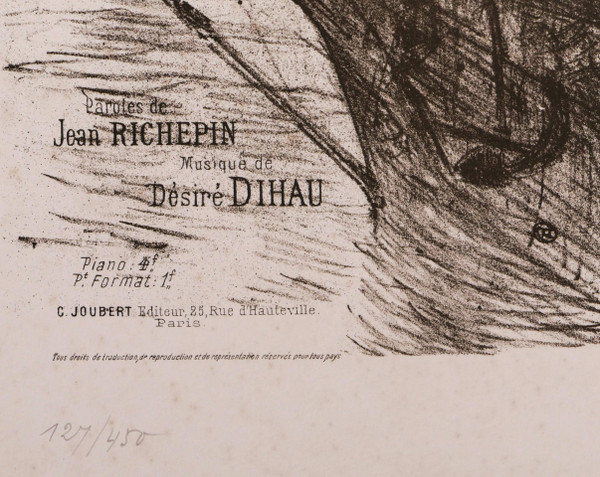 Paroles de
Jean RICHEPIN
Musique de
Désiré DIHAU
Piano: 4f.
Pt. Format: 1f.
C. JOUBERT Editeur, 25, Rue d'Hauteville.
Paris
Tous droits de traduction, de reproduction et de représentation réservés pour tous pays
127/450